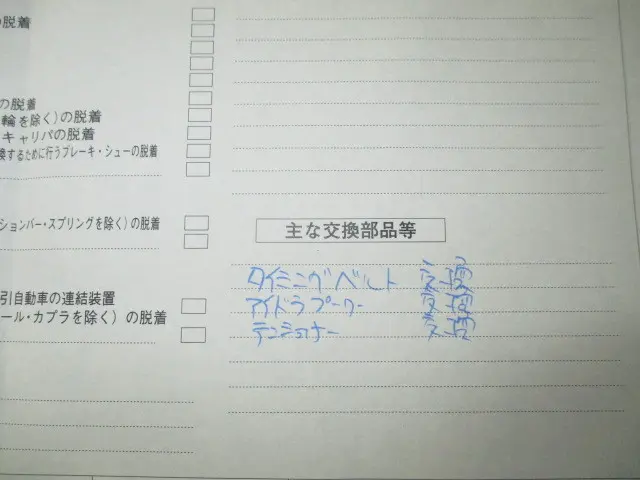 の脱着
の脱着
輪を除く)の脱着
キャリパの脱着
換するために行うブレーキ・シューの脱着
ションバー・スプリングを除く)の脱着
引自動車の連結装置
ール・カプラを除く)の脱着
主な交換部品等
タイミングベルト 交換
アイドラプーリー 交換
テンショナー 交換